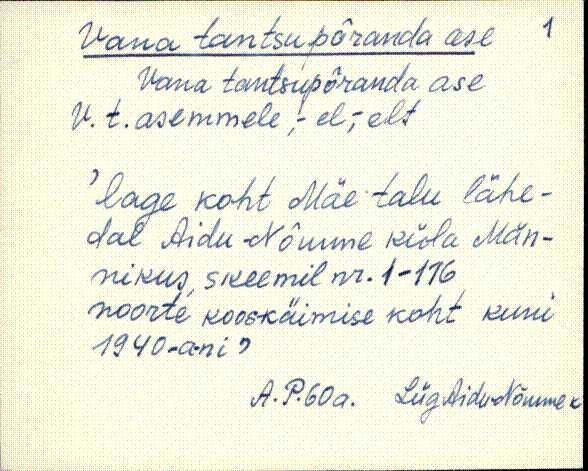 Vana tantsupõranda ase 1
Vana tantsupõranda ase
V. t. asemmele, -el, -elt
'lage koht Mäe talu lähe-
dal Aidu-Nõmme küla Män-
nikus, skeemil nr. 1-176
noorte kooskäimise koht kuni
1940-a-ni'
A.P. 60 a. Lüg Aidu-Nõmme k